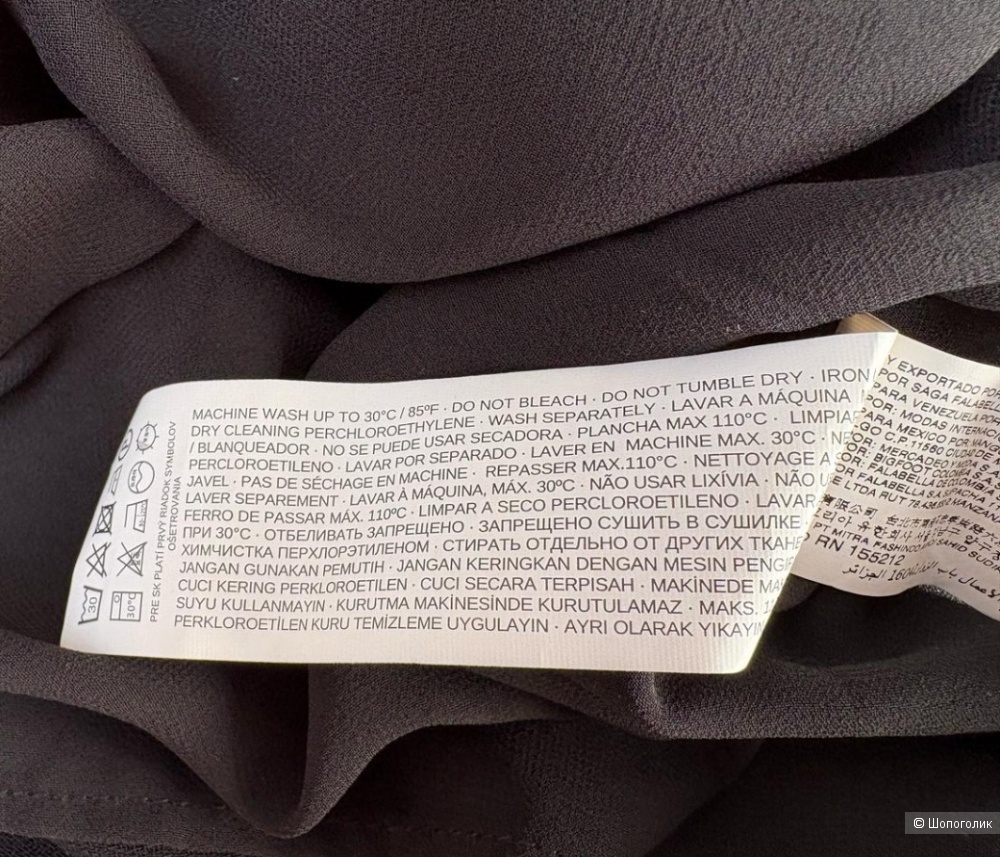 MACHINE WASH UP TO 30°C / 85ºF · DO NOT BLEACH · DO NOT TUMBLE DRY · IRON
DRY CLEANING PERCHLOROETHYLENE · WASH SEPARATELY · LAVAR A MÁQUINA
/ BLANQUEADOR · NO SE PUEDE USAR SECADORA · PLANCHA MAX 110°C · LIMPIA
PERCLOROETILENO · LAVAR POR SEPARADO · LAVER EN MACHINE MAX. 30°C · NE
JAVEL · PAS DE SÉCHAGE EN MACHINE · REPASSER MAX.110°C · NETTOYAGE A
LAVER SEPAREMENT · LAVAR À MÁQUINA, MÁX. 30ºC · NÃO USAR LIXÍVIA · NÃO U
FERRO DE PASSAR MÁX. 110ºC · LIMPAR A SECO PERCLOROETILENO · LAVAR
ПРИ 30°C · ОТБЕЛИВАТЬ ЗАПРЕЩЕНО · ЗАПРЕЩЕНО СУШИТЬ В СУШИЛКЕ
ХИМЧИСТКА ПЕРХЛОРЭТИЛЕНОМ · СТИРАТЬ ОТДЕЛЬНО ОТ ДРУГИХ ТКАНЕ
JANGAN GUNAKAN PEMUTIH · JANGAN KERINGKAN DENGAN MESIN PENGE
CUCI KERING PERKLOROETILEN · CUCI SECARA TERPISAH · MAKİNEDE MA
SUYU KULLANMAYIN · KURUTMA MAKİNESİNDE KURUTULAMAZ · MAKS. 1
PERKLOROETİLEN KURU TEMİZLEME UYGULAYIN · AYRI OLARAK YIKAYIN
PRE SK PLATÍ PRVÝ RIADOK SYMBOLOV
OŠETROVANIA
30
30°C
Y EXPORTADO POR
POR SAGA FALABELL
PARA VENEZUELA POR
POR: MODAS INTERNAC
PARA MÉXICO POR
GO C.P.11560 CIUDAD DE
OR: MERCADEO Y MODA S.A
OR: BIGFOOT COLOMBIA
R: FALABELLA S.A. SUIPACHA
E LTDA RUT 78.
PT MITRA
RN 155212
16042 الجزائر
© Шопоголик